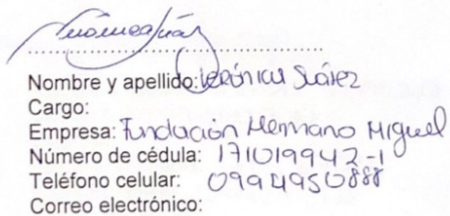 Nombre y apellido: Verónica Suárez
Cargo:
Empresa: Fundación Hermano Miguel
Número de cédula: 171019942-1
Teléfono celular: 0994950888
Correo electrónico: